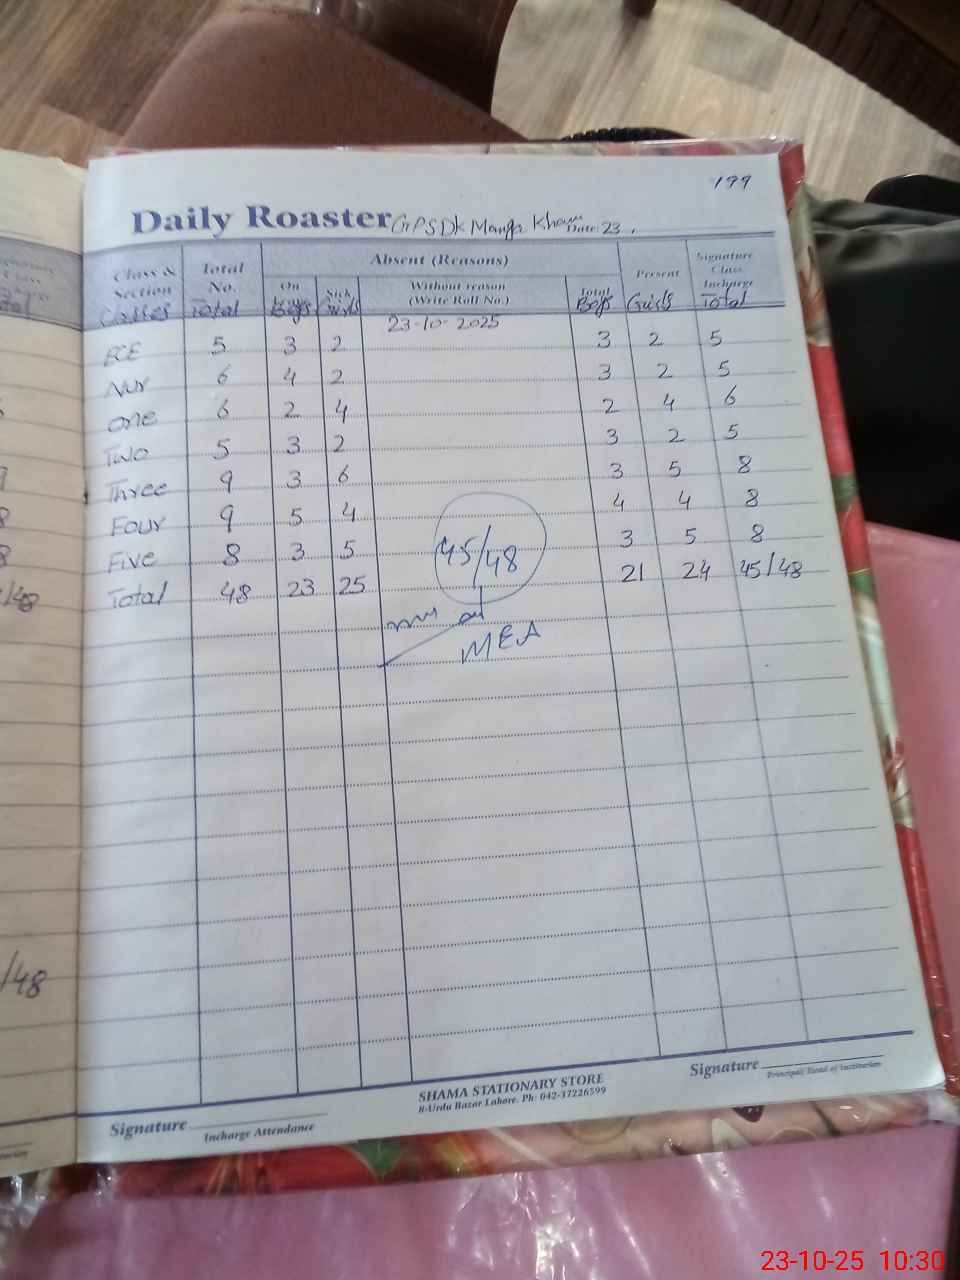 199
Daily Roaster GPS Dk Manga Khan Date: 23.
Class & Section Total No. Absent (Reasons) Present Signature Class Incharge
On Sick Without reason (Write Roll No.) Total
Classes Total Boys Girls Boys Girls Total
23-10-2025
ECE 5 3 2 3 2 5
Nur 6 4 2 3 2 5
One 6 2 4 2 4 6
Two 5 3 2 3 2 5
Three 9 3 6 3 5 8
Four 9 5 4 4 4 8
Five 8 3 5 3 5 8
Total 48 23 25 21 24 45/48
45/48
MEA
9
8
8
/48
/48
Signature
Incharge Attendance
SHAMA STATIONARY STORE
8-Urdu Bazar Lahore. Ph: 042-37226599
Signature
Principal/Head of Institution
23-10-25 10:30